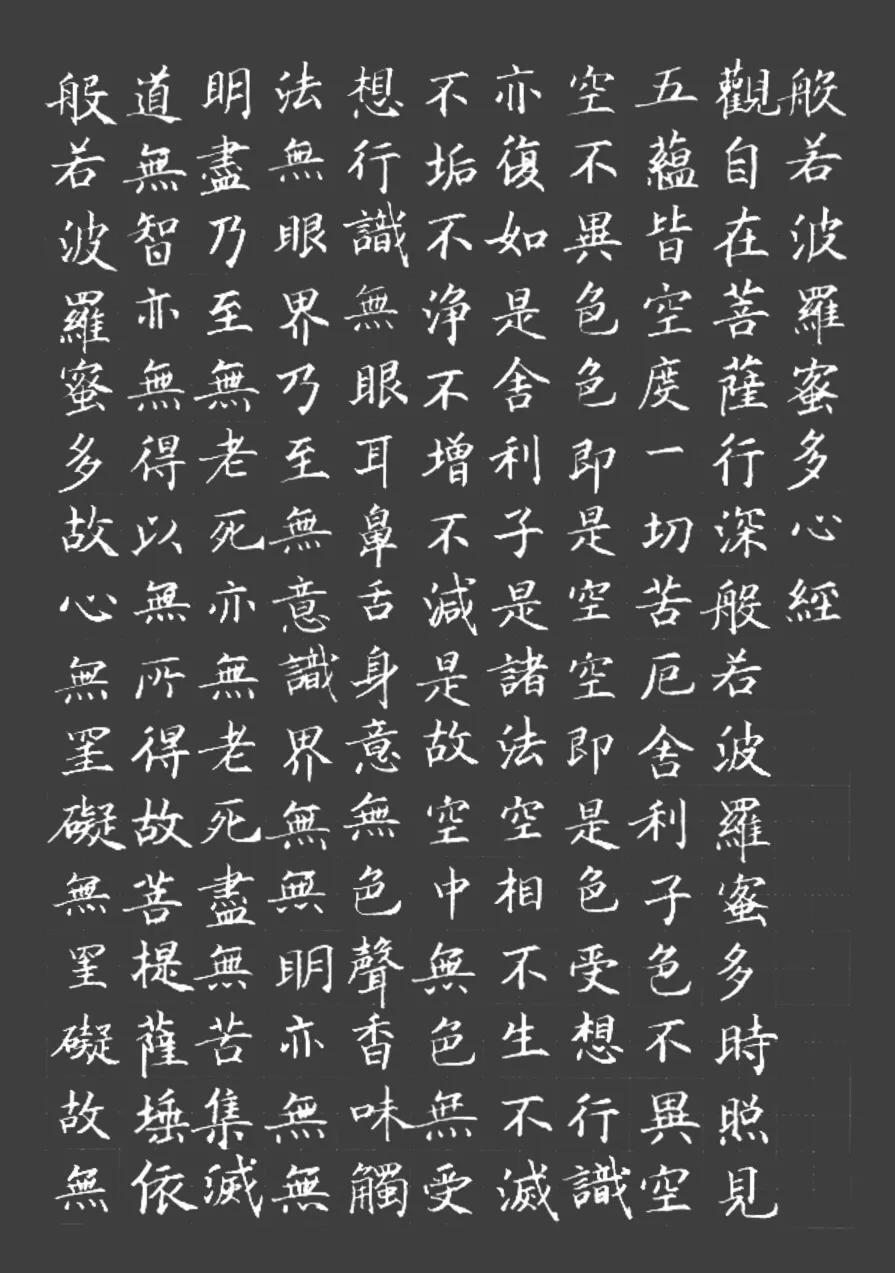 般若波羅蜜多心經
觀自在菩薩行深般若波羅蜜多時照見
五蘊皆空度一切苦厄舍利子色不異空
空不異色色即是空空即是色受想行識
亦復如是舍利子是諸法空相不生不滅
不垢不淨不增不減是故空中無色無受
想行識無眼耳鼻舌身意無色聲香味觸
法無眼界乃至無意識界無無明亦無無
明盡乃至無老死亦無老死盡無苦集滅
道無智亦無得以無所得故菩提薩埵依
般若波羅蜜多故心無罣礙無罣礙故無